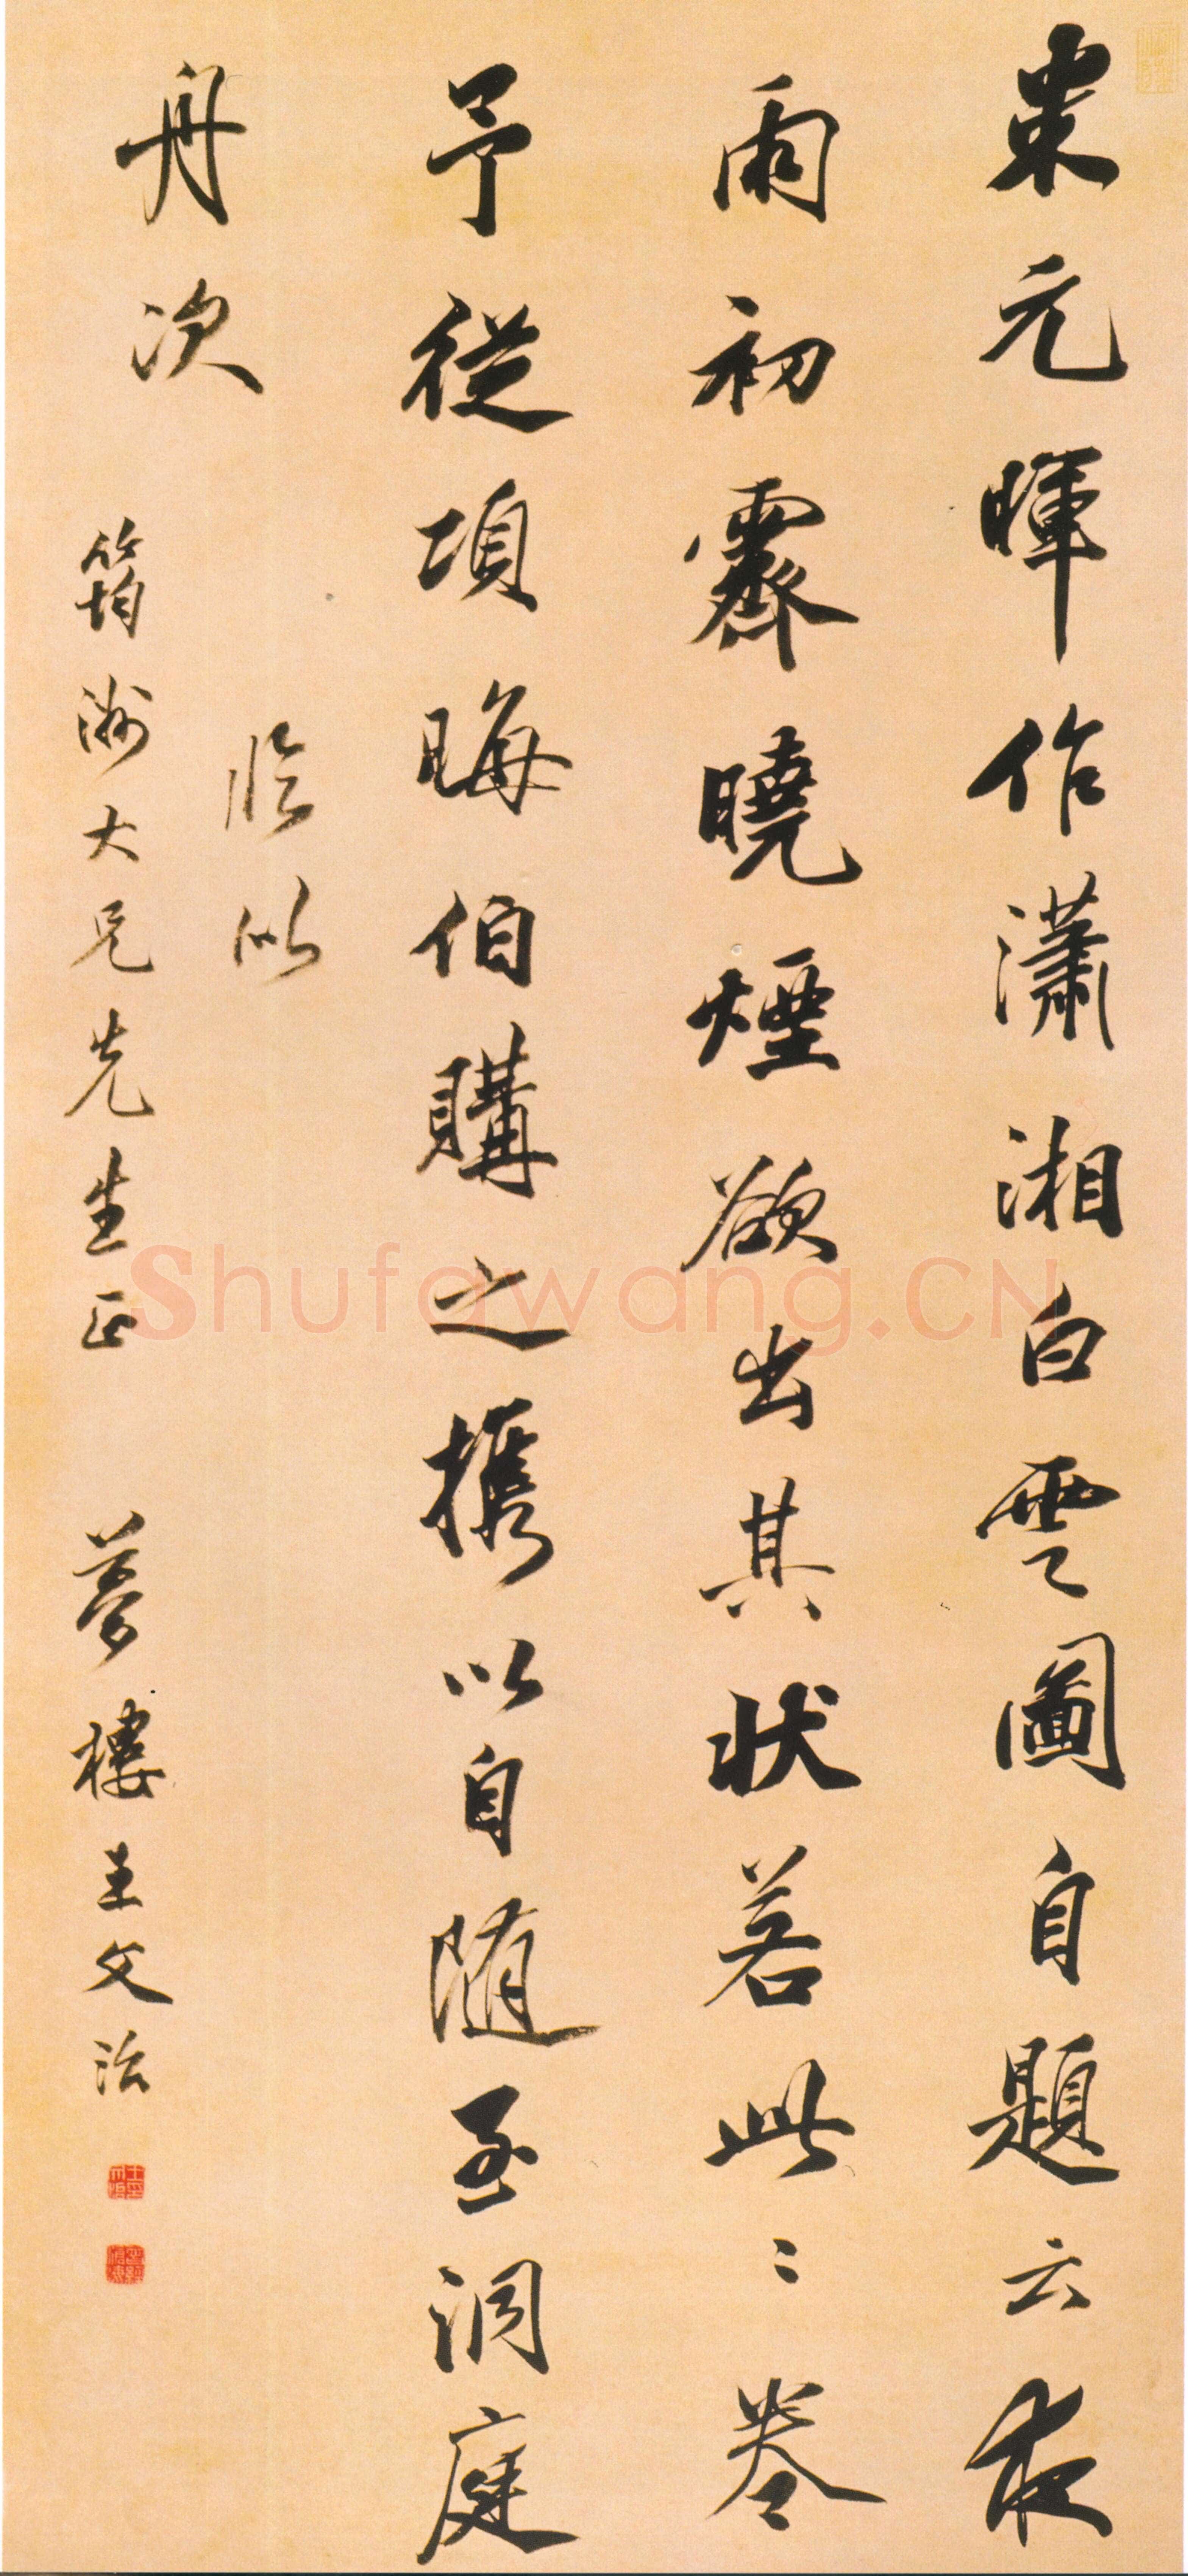 米元暉作瀟湘白雲圖自題云夜
雨初霽曉煙欲出其狀若此〻卷
予從項晦伯購之携以自随至洞庭
舟次
臨似
筠洲大兄先生正 夢樓王文治
Shufawang.CN